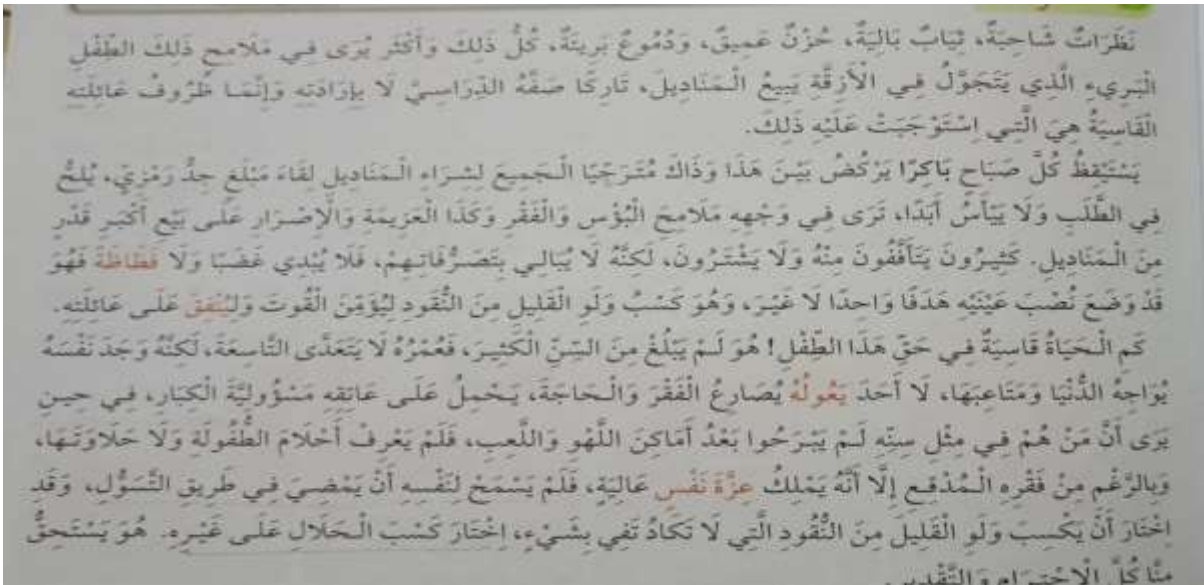 نَظَرَاتٌ شَاحِبَةٌ، ثِيَابٌ بَالِيَةٌ، حُزْنٌ عَمِيقٌ، وَدُمُوعٌ بَرِيئَةٌ، كُلُّ ذَلِكَ وَأَكْثَر يُرَى فِي مَلَامِحِ ذَلِكَ الطِّفْلِ
الْبَرِيءِ الَّذِي يَتَجَوَّلُ فِي الْأَزِقَّةِ يَبِيعُ الْـمَنَادِيلَ، تَارِكًا صَفَّهُ الدِّرَاسِيَّ لَا بِإِرَادَتِهِ وَإِنَّمَا ظُرُوفُ عَائِلَتِهِ
الْقَاسِيَةُ هِيَ الَّتِي اِسْتَوْجَبَتْ عَلَيْهِ ذَلِكَ.
يَسْتَيْقِظُ كُلَّ صَبَاحٍ بَاكِرًا يَرْكُضُ بَيْنَ هَذَا وَذَاكَ مُتَرَجِّيًا الْـجَمِيعَ لِشِرَاءِ الْـمَنَادِيلِ لِقَاءَ مَبْلَغٍ جِدُّ رَمْزِيٍّ، يُلِحُّ
فِي الطَّلَبِ وَلَا يَيْأَسُ أَبَدًا، تَرَى فِي وَجْهِهِ مَلَامِحَ الْبُؤْسِ وَالْفَقْرِ وَكَذَا الْعَزِيمَةِ وَالْإِصْرَارِ عَلَى بَيْعِ أَكْبَرِ قَدْرٍ
مِنَ الْـمَنَادِيلِ. كَثِيرُونَ يَتَأَفَّفُونَ مِنْهُ وَلَا يَشْتَرُونَ، لَكِنَّهُ لَا يُبَالِي بِتَصَرُّفَاتِهِمْ، فَلَا يُبْدِي غَضَبًا وَلَا فَظَاظَةً فَهُوَ
قَدْ وَضَعَ نُصْبَ عَيْنَيْهِ هَدَفًا وَاحِدًا لَا غَيْرَ، وَهُوَ كَسْبُ وَلَو الْقَلِيلِ مِنَ النُّقُودِ لِيُؤَمِّنَ الْقُوتَ وَلِيُنْفِقَ عَلَى عَائِلَتِهِ.
كَمِ الْـحَيَاةُ قَاسِيَةٌ فِي حَقِّ هَذَا الطِّفْلِ! هُوَ لَـمْ يَبْلُغْ مِنَ السِّنِّ الْكَثِيرَ، فَعُمْرُهُ لَا يَتَعَدَّى التَّاسِعَةَ، لَكِنَّهُ وَجَدَ نَفْسَهُ
يُوَاجِهُ الدُّنْيَا وَمَتَاعِبَهَا، لَا أَحَدَ يَعُولُهُ يُصَارِعُ الْفَقْرَ وَالْـحَاجَةَ، يَـحْمِلُ عَلَى عَاتِقِهِ مَسْؤُولِيَّةَ الْكِبَارِ، فِي حِينِ
يَرَى أَنَّ مَنْ هُمْ فِي مِثْلِ سِنِّهِ لَـمْ يَبْرَحُوا بَعْدُ أَمَاكِنَ اللَّهْوِ وَاللَّعِبِ، فَلَمْ يَعْرِفْ أَحْلَامَ الطُّفُولَةِ وَلَا حَلَاوَتَـهَا،
وَبِالرَّغْمِ مِنْ فَقْرِهِ الْـمُدْقِعِ إِلَّا أَنَّهُ يَمْلِكُ عِزَّةَ نَفْسٍ عَالِيَةٍ، فَلَمْ يَسْمَحْ لِنَفْسِهِ أَنْ يَمْضِيَ فِي طَرِيقِ التَّسَوُّلِ، وَقَدِ
اِخْتَارَ أَنْ يَكْسِبَ وَلَو الْقَلِيلَ مِنَ النُّقُودِ الَّتِي لَا تَكَادُ تَفِي بِشَيْءٍ، اِخْتَارَ كَسْبَ الْـحَلَالِ عَلَى غَيْرِهِ. هُوَ يَسْتَحِقُّ
مِنَّا كُلَّ الْاِحْتِرَامِ وَالتَّقْدِيرِ.